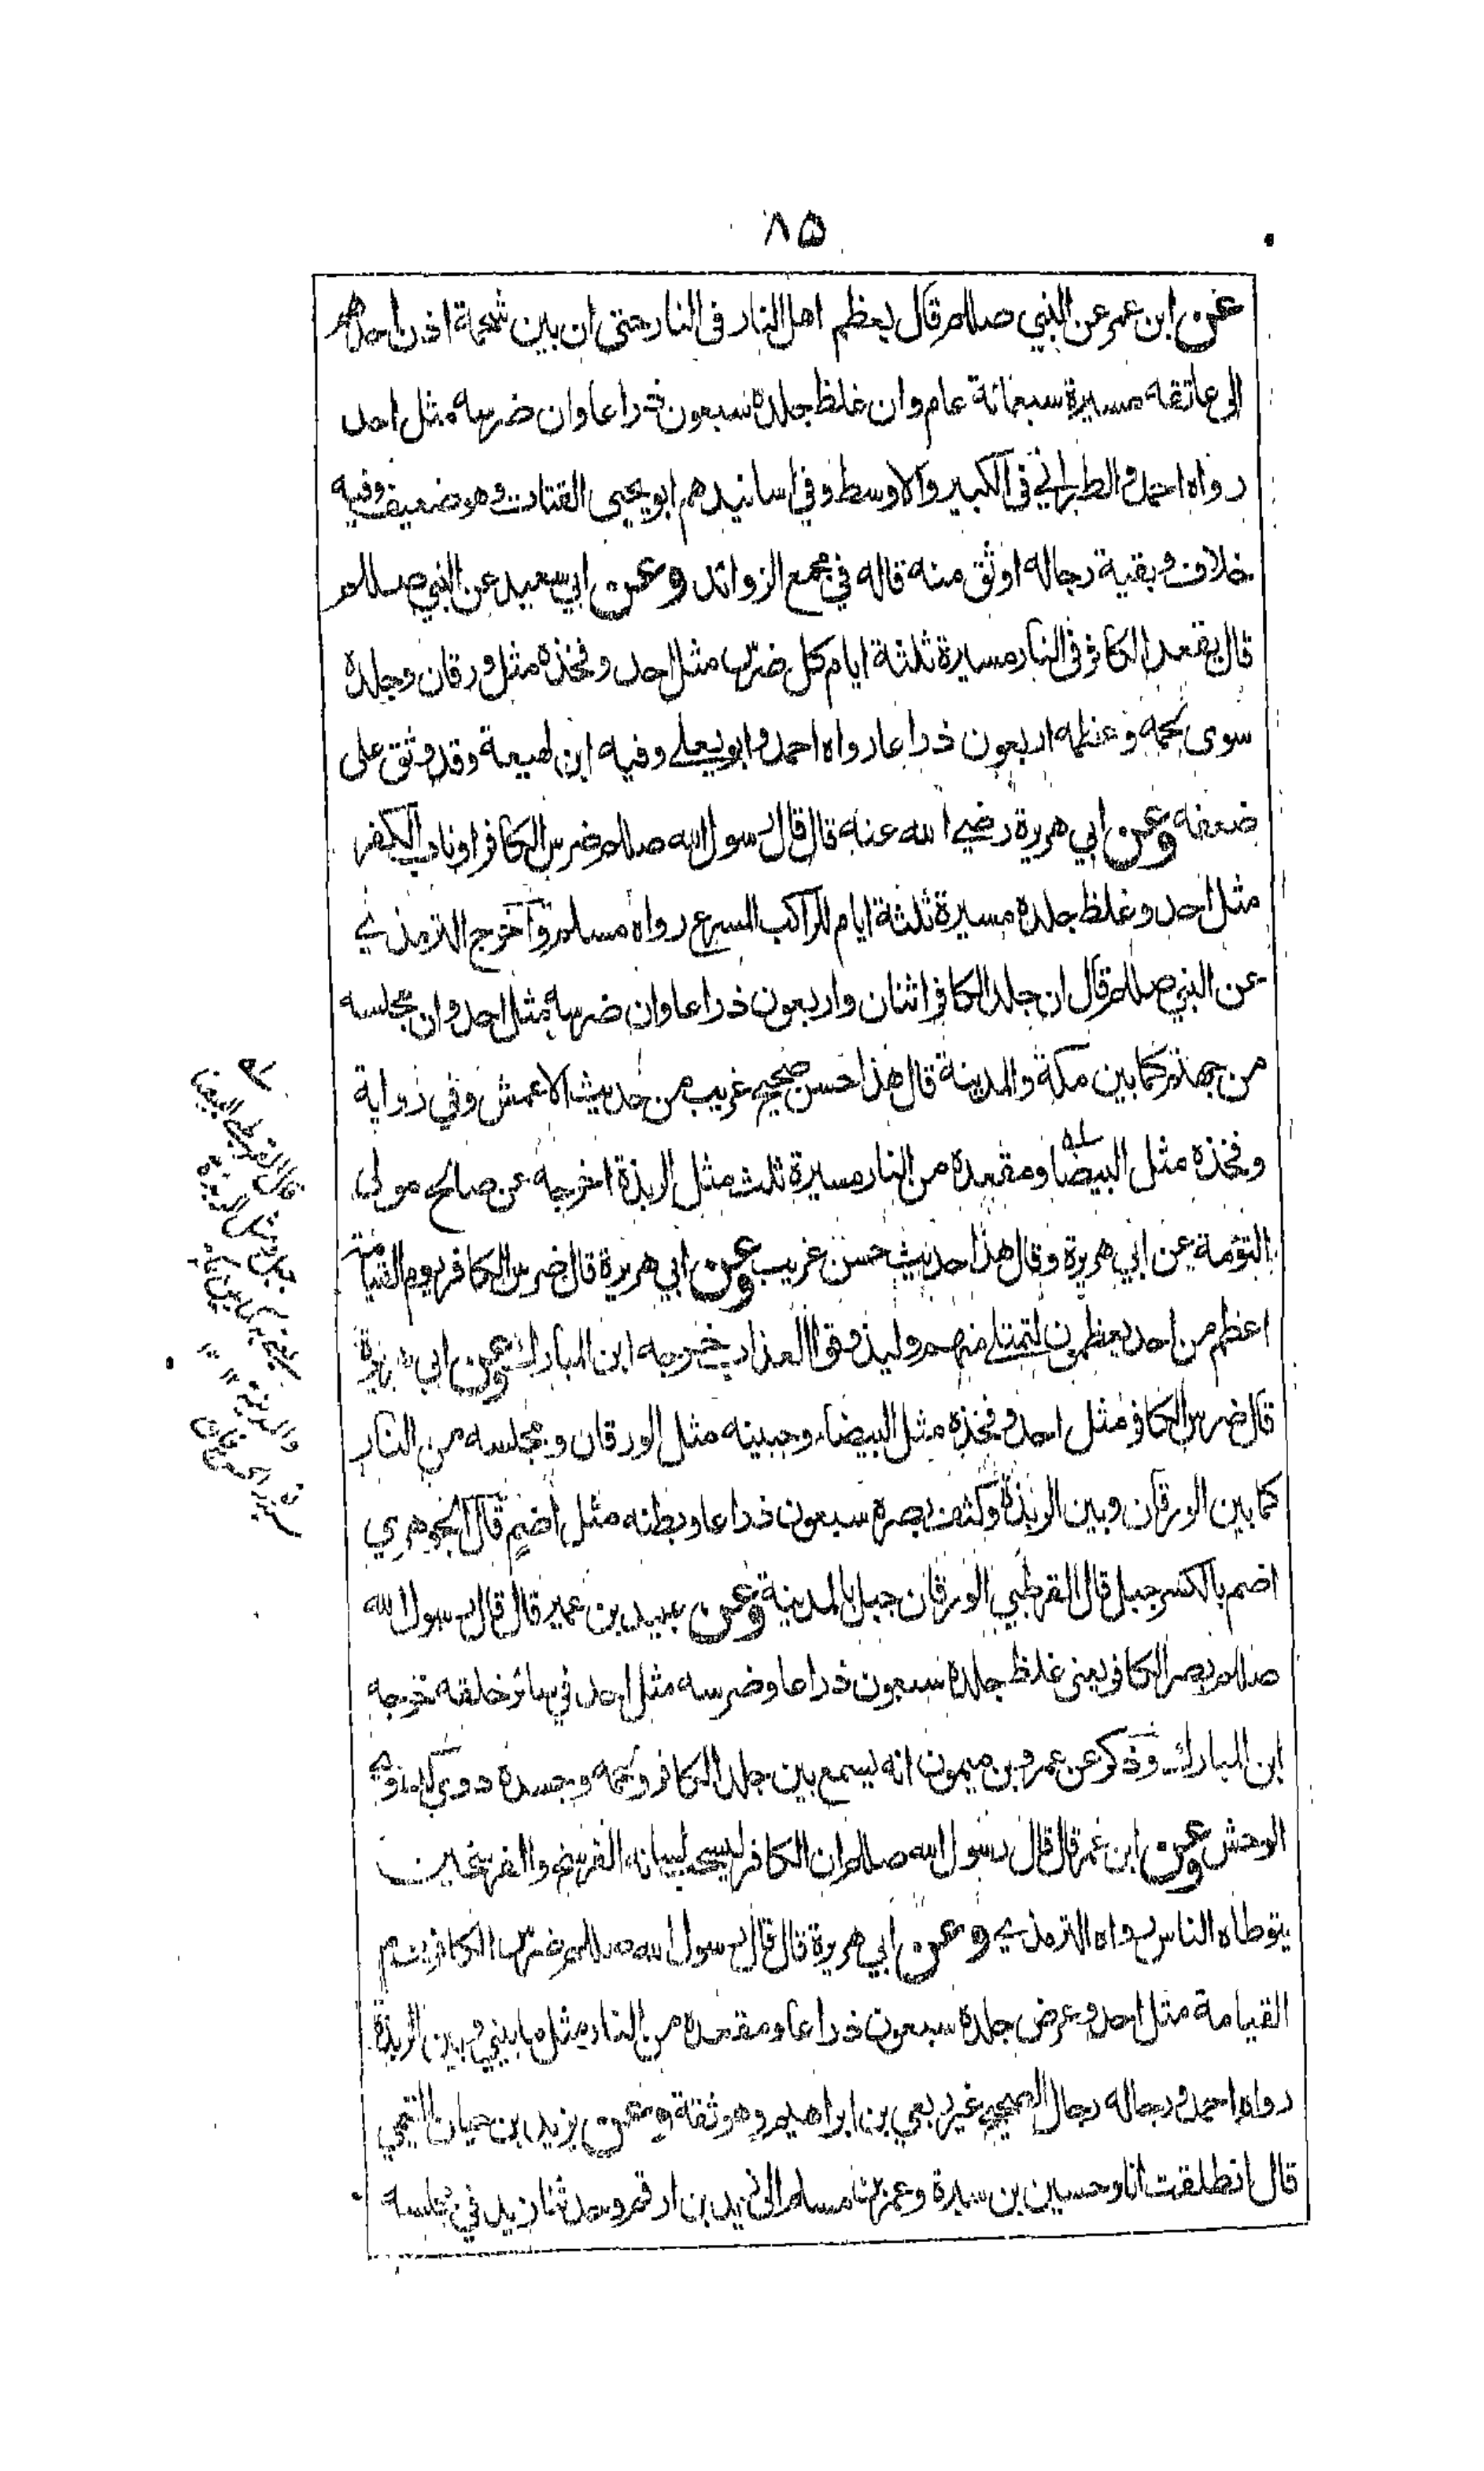 ٨۵
عن ابن عمر عن النبي صللم قال يعظم اهل النار فى النار حتى ان بين شحمة اذن احدهم
الى عاتقه مسيرة سبعمائة عام وان غلظ جلده سبعون ذراعا وان ضرسه مثل احد
رواه احمد والطبراني فى الكبير والاوسط وفي اسانيدهم ابو يحيى القتات وهو ضعيف وفيه
خلاف وبقية رجاله اوثق منه قاله في مجمع الزوائد وعن ابي سعيد عن النبي صللم
قال يقعد الكافر فى النار مسيرة ثلثة ايام كل ضرس مثل احد وفخذه مثل ورقان وجلده
سوى لحمه وعظمه اربعون ذراعا رواه احمد وابو يعلى وفيه ابن لهيعة وقد وثق على
ضعفه وعن ابي هريرة رضي الله عنه قال قال رسول الله صللم ضرس الكافر او ناب الكافر
مثل احد وغلظ جلده مسيرة ثلثة ايام للراكب المسرع رواه مسلم واخرج الترمذي
عن النبي صللم قال ان جلد الكافر اثنان واربعون ذراعا وان ضرسه مثل احد وان مجلسه
من جهنم كما بين مكة والمدينة قال هذا حسن صحيح غريب من حديث الاعمش وفي رواية
وفخذه مثل البيضا ومقعده من النار مسيرة ثلث مثل الربذة اخرجه عن صالح مولى
التؤمة عن ابي هريرة وقال هذا حديث حسن غريب وعن ابي هريرة قال ضرس الكافر يوم القيامة
اعظم من احد يعظمون لتمتلئ منهم وليذوقوا العذاب خرجه ابن المبارك وعن ابي هريرة
قال ضرس الكافر مثل احد وفخذه مثل البيضاء وجبينه مثل الورقان ومجلسه من النار
كما بين الورقان وبين الربذة وكثف بصره سبعون ذراعا وبطنه مثل اضم قال الجوهري
اضم بالكسر جبل قال القرطبي الورقان جبل بالمدينة وعن عبيد بن عمير قال قال رسول الله
صللم بصر الكافر يعنى غلظ جلده سبعون ذراعا وضرسه مثل احد في سائر خلقه خرجه
ابن المبارك وذكر عن عمرو بن ميمون انه يسمع بين جلد الكافر ولحمه وجسده دوي كدوي
الوحش وعن ابن عمر قال قال رسول الله صللم ان الكافر ليسحب لسانه الفرسخ والفرسخين
يتوطاه الناس رواه الترمذي وعن ابي هريرة قال قال رسول الله صللم ضرس الكافر يوم
القيامة مثل احد وعرض جلده سبعون ذراعا ومقعده من النار مثل ما بيني وبين الربذة
رواه احمد ورجاله رجال الصحيح غير ربعي بن ابراهيم وهو ثقة وعن يزيد بن حيان التيمي
قال انطلقت انا وحسين بن سبرة وعمر بن مسلم الى زيد بن ارقم وحدثنا زيد في مجلسه
قال القرطبي البيضا
جبل مثل الربذة
والمدينة ١٢